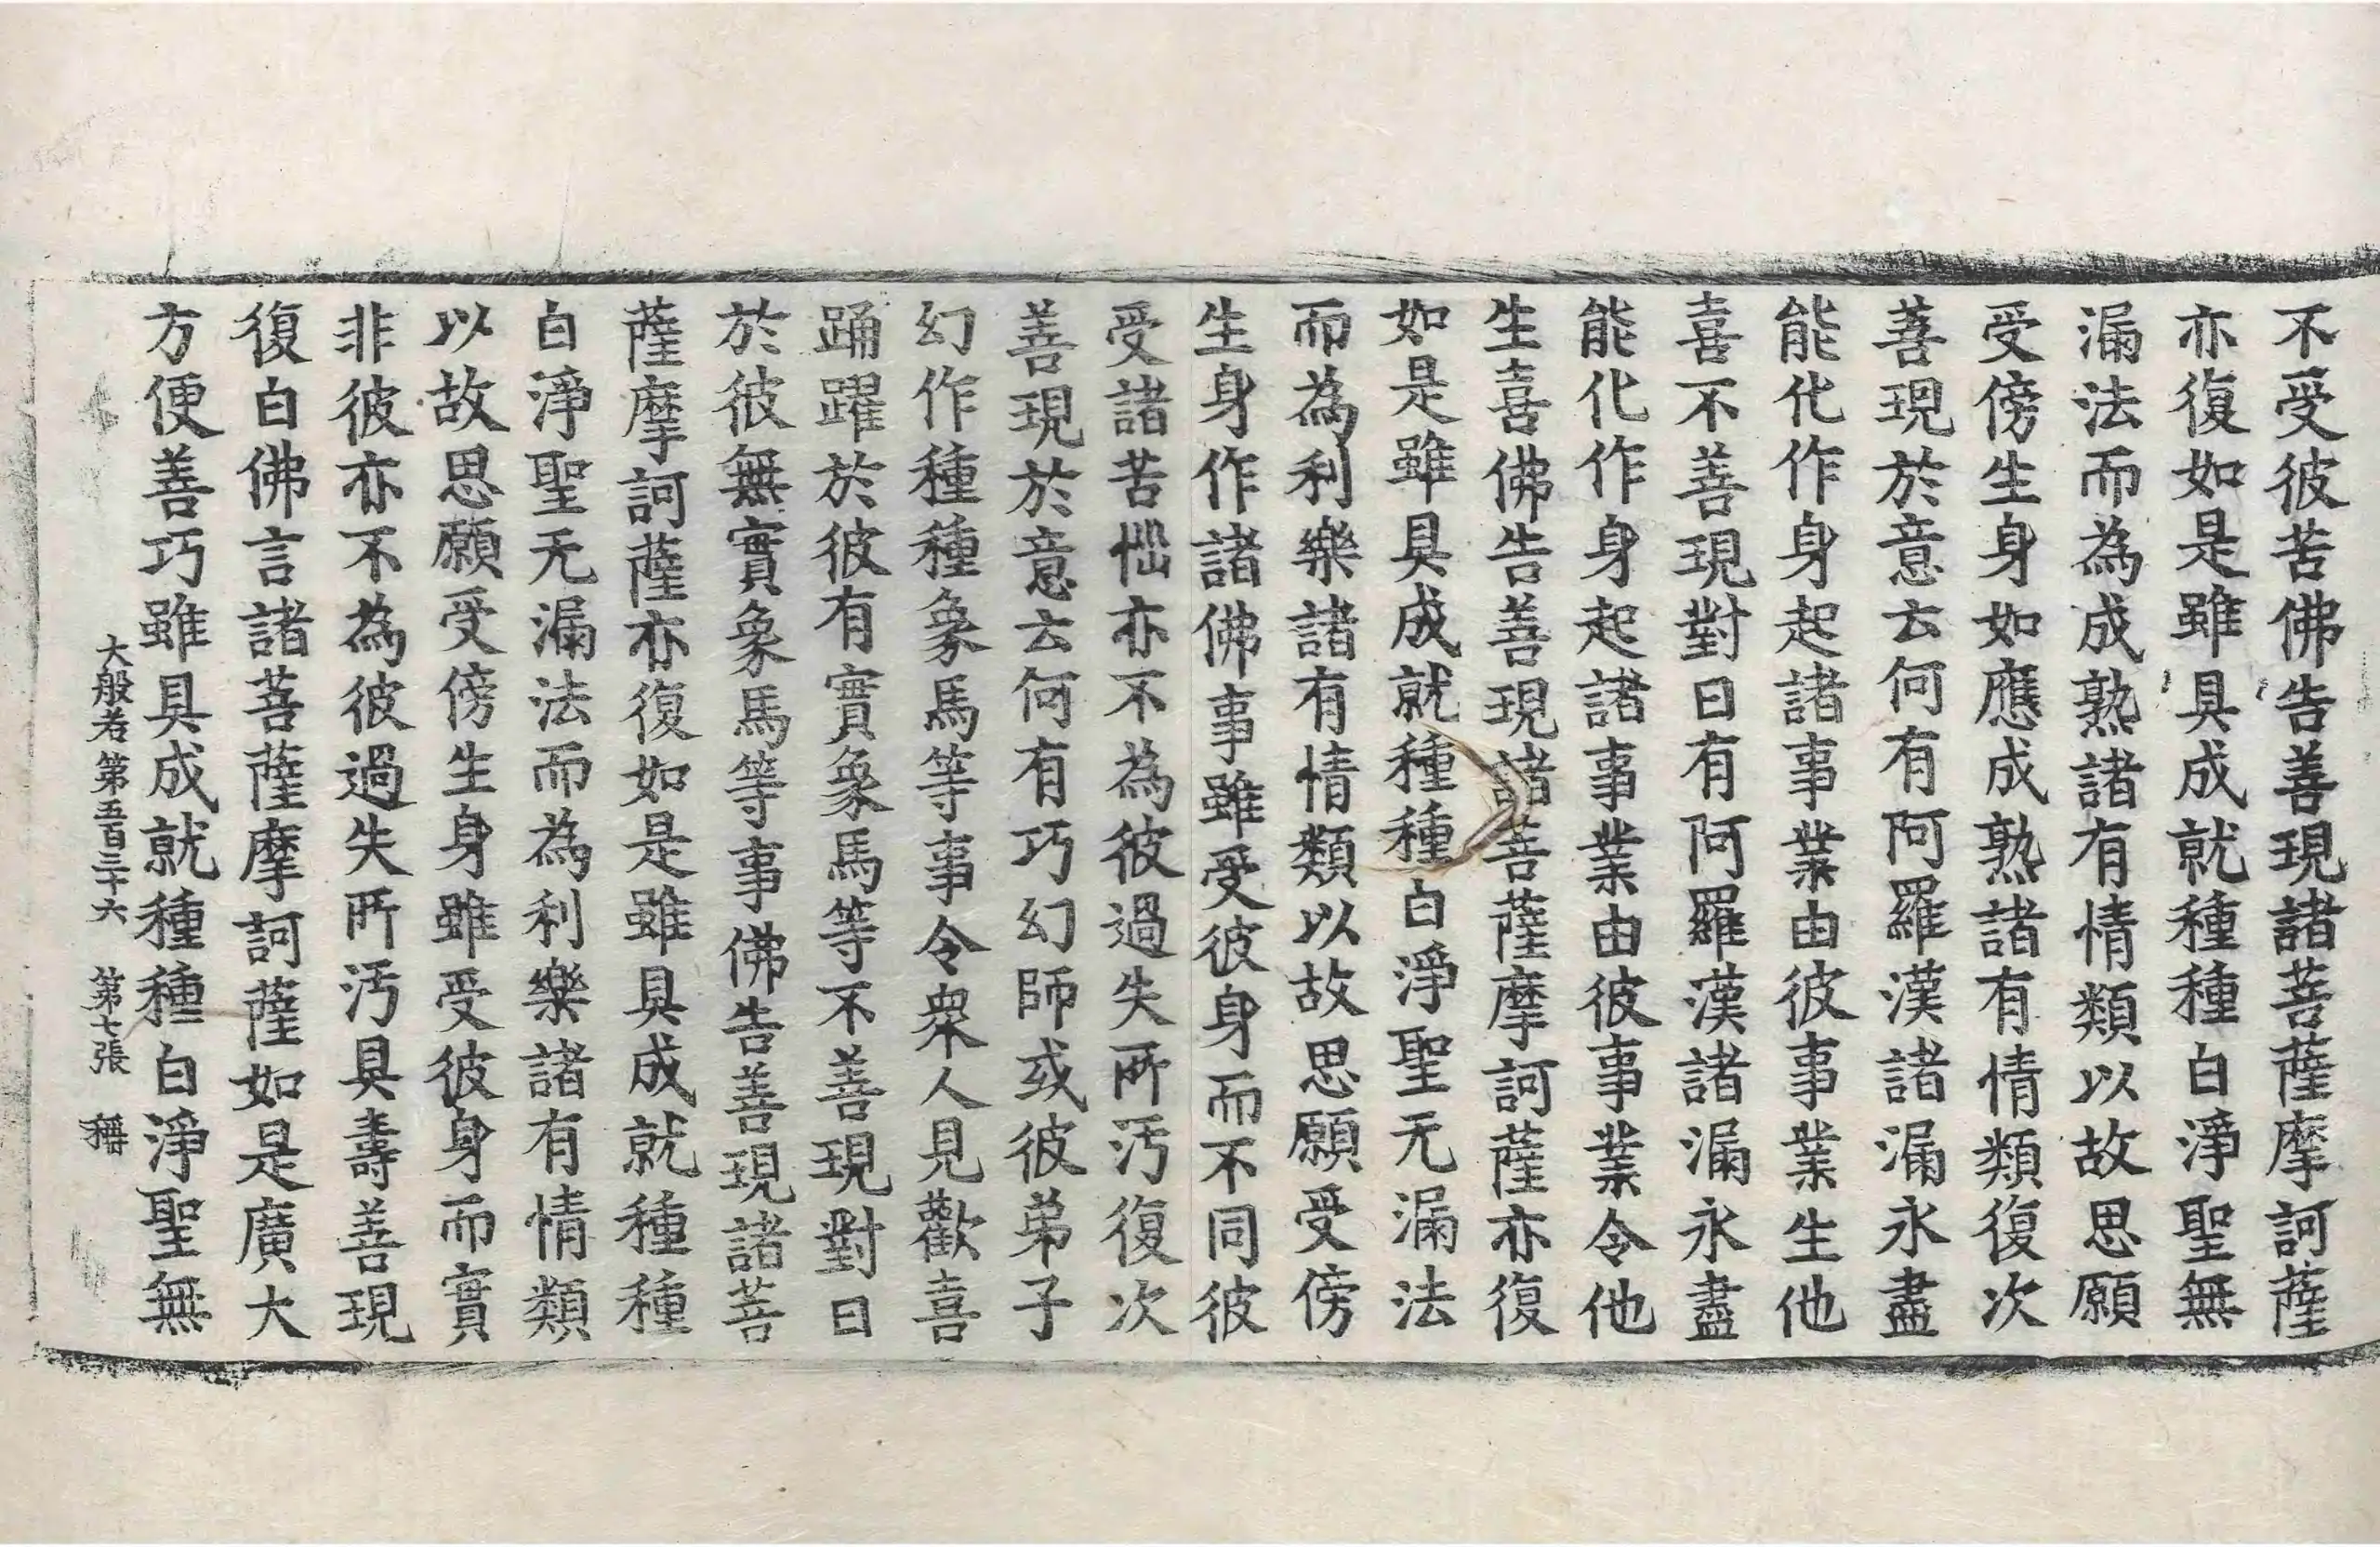 不受彼苦佛告善現諸菩薩摩訶薩
亦復如是雖具成就種種白淨聖無
漏法而為成熟諸有情類以故思願
受傍生身如應成熟諸有情類復次
善現於意云何有阿羅漢諸漏永盡
能化作身起諸事業由彼事業生他
喜不善現對曰有阿羅漢諸漏永盡
能化作身起諸事業由彼事業令他
生喜佛告善現諸菩薩摩訶薩亦復
如是雖具成就種種白淨聖无漏法
而為利樂諸有情類以故思願受傍
生身作諸佛事雖受彼身而不同彼
受諸苦惱亦不為彼過失所汚復次
善現於意云何有巧幻師或彼弟子
幻作種種象馬等事令衆人見歡喜
踊躍於彼有實象馬等不善現對曰
於彼無實象馬等事佛告善現諸菩
薩摩訶薩亦復如是雖具成就種種
白淨聖无漏法而為利樂諸有情類
以故思願受傍生身雖受彼身而實
非彼亦不為彼過失所汚具壽善現
復白佛言諸菩薩摩訶薩如是廣大
方便善巧雖具成就種種白淨聖無
大般若第五百三十六 第七張 稱